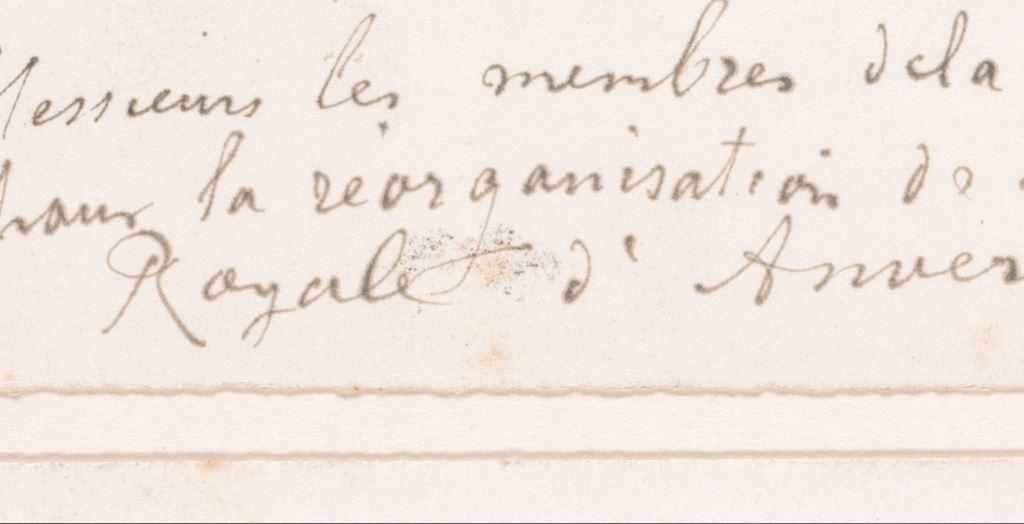 Messieurs les membres dela
pour la réorganisation de
Royale d'Anvers